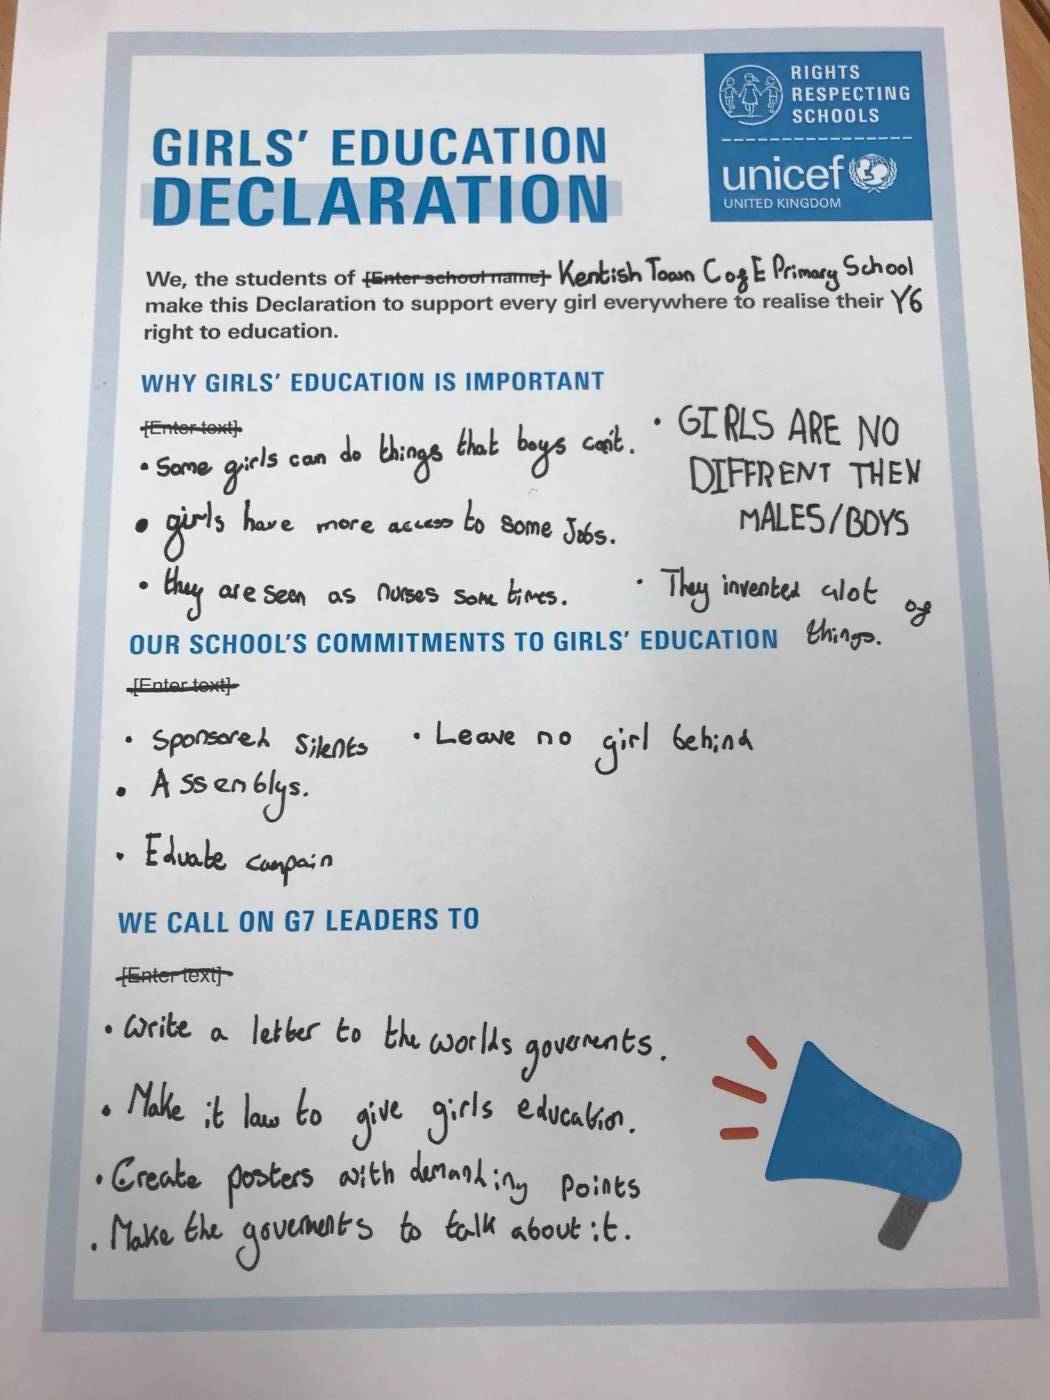 RIGHTS
RESPECTING
SCHOOLS
unicef
UNITED KINGDOM
GIRLS' EDUCATION
DECLARATION
We, the students of [Enter school name] Kentish Town C of E Primary School
make this Declaration to support every girl everywhere to realise their Y6
right to education.
WHY GIRLS' EDUCATION IS IMPORTANT
[Enter text]
• Some girls can do things that boys can't.
• girls have more access to some Jobs.
• they are seen as nurses some times.
• GIRLS ARE NO
DIFFRENT THEN
MALES/BOYS
• They invented alot of
things.
OUR SCHOOL'S COMMITMENTS TO GIRLS' EDUCATION
[Enter text]
• Sponsored Silents
• Leave no girl behind
• Assemblys.
• Eduate campain
WE CALL ON G7 LEADERS TO
[Enter text]
• Write a letter to the worlds goverments.
• Make it law to give girls education.
• Create posters with demanding points
• Make the goverments to talk about it.